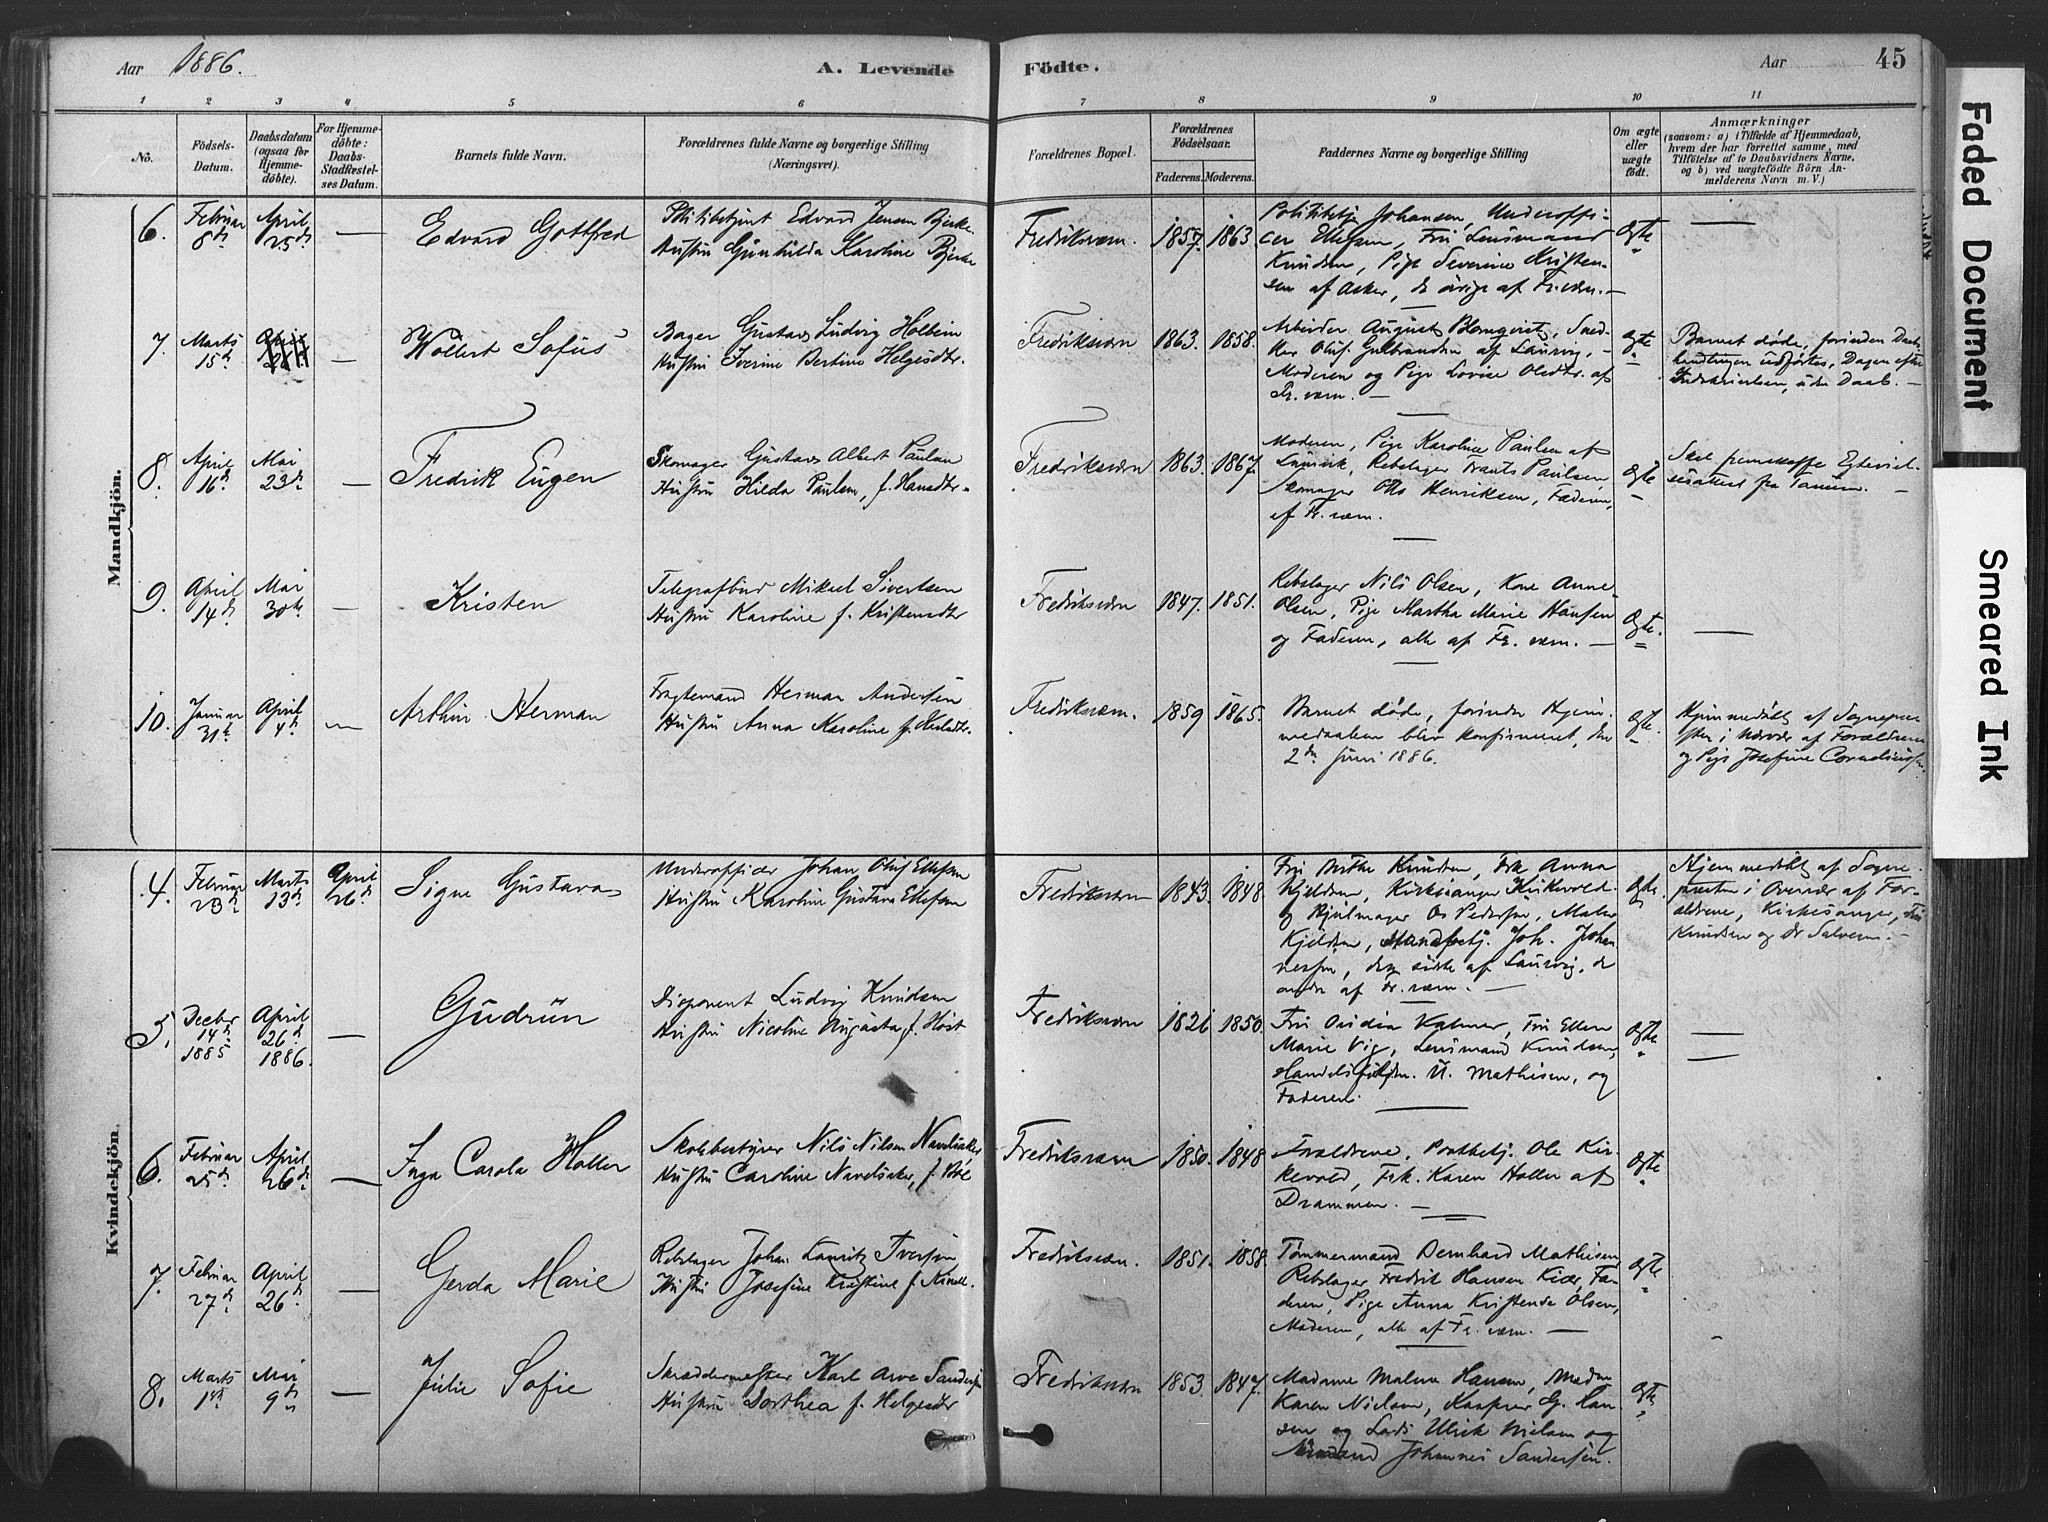 Aar 1886.
A. Levende Födte.
Aar
45
Faded Document
Smeared Ink
1 2 3 4 5 6 7 8 9 10 11
No.
Födsels-
Datum.
Daabsdatum
(ogsaa for
Hjemme-
döbte).
For Hjemme-
döbte:
Daabs-
Stadfæstel-
ses Datum.
Barnets fulde Navn.
Forældrenes fulde Navne og borgerlige Stilling
(Næringsvei).
Forældrenes Bopæl.
Forældrenes
Födselsaar.
Faderens. Moderens.
Faddernes Navne og borgerlige Stilling
Om ægte
eller
uægte
födt.
Anmærkninger
(saasom: a) i Tilfælde af Hjemmedaab,
hvem der har forrettet samme, med
Tilföielse af to Daabsvidners Navne,
og b) ved uægtefödte Börn An-
melderens Navn m. V.)
Mandkjön.
6.
Februar
8d
April
25d
—
Edvard Gottfred
Politibetjent Edvard Jensen Bjerke
Hustru Gunhilda Karoline Bjerke
Fredriksværn.
1857. 1863.
Politibetj. Johansen, Underoffi-
cer Ellefsen, Fru Lensmand
Knudsen, Pige Severine Kristen-
sen af Asker, de övrige af Fr.værn. —
Ægte
—
7.
Marts
15d
April
—
Wollert Sofus
Bager Gustav Ludvig Holbein
Hustru Iverine Bertine Helgesdtr.
Fredriksværn
1863. 1858.
Arbeider August Blomqvist, Sned-
ker Oluf Gulbrandsen af Laurvig, -
Moderen og Pige Lovise Olsdtr. af
Fr.værn. —
Ægte
Barnet døde, forinden Daabs-
handlingen udførtes, Dagen efter
Indskrivelsen, uden Daab. —
8.
April
16d
Mai
23d
—
Fredrik Eugen
Skomager Gustav Albert Paulsen
Hustru Hilda Paulsen, f. Hansdtr.
Fredriksværn
1863. 1867.
Moderen, Pige Karoline Paulsen af
Laurvik, Rebslager Frants Paulsen
Skomager Otto Henriksen, Faderen,
af Fr. værn.
Ægte
Skal fremskaffe Egteviel-
sesattest fra Tanum. —
9.
April
14d
Mai
30te
—
Kristen
Telegrafbud Mikael Sivertsen
Hustru Karoline f. Kristensdtr
Fredriksværn
1847. 1851.
Rebslager Nils Olsen, Kone Anne
Olsen, Pige Martha Marie Hansen
og Faderen, alle af Fr. værn. —
Ægte.
—
10.
Januar
31te
April
4d
—
Arthur Herman
Fragtemand Herman Andersen
Hustru Anna Karoline f.
Fredriksværn.
1859 1865.
Barnet døde, forinden Hjem-
medaaben blev konfirmeret, den
2den Juni 1886.
Ægte.
Hjemmedøbt af Sognepræ-
sten i Nærvær af Forældrene
og Pige Josefine Corneliussen.
Kvindekjön.
4.
Februar
23d
Marts
13d
April
26d
Signe Gustava
Underofficer Johan Oluf Ellefsen
Hustru Karoline Gustava Ellefsen
Fredriksværn
1843. 1848.
Fru Knudsen, Frk Anna
Kjeldsen, Kirkesanger Kirkevold
og Hjulmager Os Pedersen, Maler
Kjeldsen, Joh. Johan
nessen, den sidste af Laurvig, de
andre af Fr. værn. —
Ægte.
Hjemmedøbt af Sogne-
præsten i Overvær af For-
ældrene, Kirkesanger, Fru
Knudsen og Salvesen. —
5.
Decbr
14d
1885
April
26d
1886.
—
Gudrun
Disponent Ludvig Knudsen
Hustru Nicoline Augusta f. Høst
Fredriksværn
1826 1850.
Fru Ovidia Kalmer, Fru Ellen
Marie Vig, Lensmand Knudsen,
Handelsfuldm. U. Mathisen, og
Faderen.
Ægte
—
6.
Februar
25d
April
26d
—
Inga Carola Holler
Skolebestyrer Nils Nilsen Navelsaker
Hustru Caroline Navelsaker, f. Bøe
Fredriksværn
1850. 1848
Forældrene, Postbetj. Ole Kir-
kevold, Frk. Karen Holler af
Drammen. —
Ægte
7.
Februar
27d
April
26d
—
Gerda Marie
Rebslager Johan Lauritz Iversen
Hustru Josefine Kristine f.
Fredriksværn.
1851. 1858.
Tømmermand Bernhard Mathisen
Rebslager Fredrik Hansen Kiær, Fa-
deren, Pige Anna Kristense Olsen,
Moderen, alle af Fr. værn. —
Ægte
8.
Marts
1ste
Mai
9d
—
Julie Sofie
Skræddermester Karl Arve Sandersen
Hustru Dorthea f. Helgesdtr
Fredriksværn
1853. 1847.
Madame Malene Hansen, Madm
Karen Nielsen, Kasper G. Han-
sen og Lods Ulrik Nielsen og
Johannes Sandersen.
Ægte